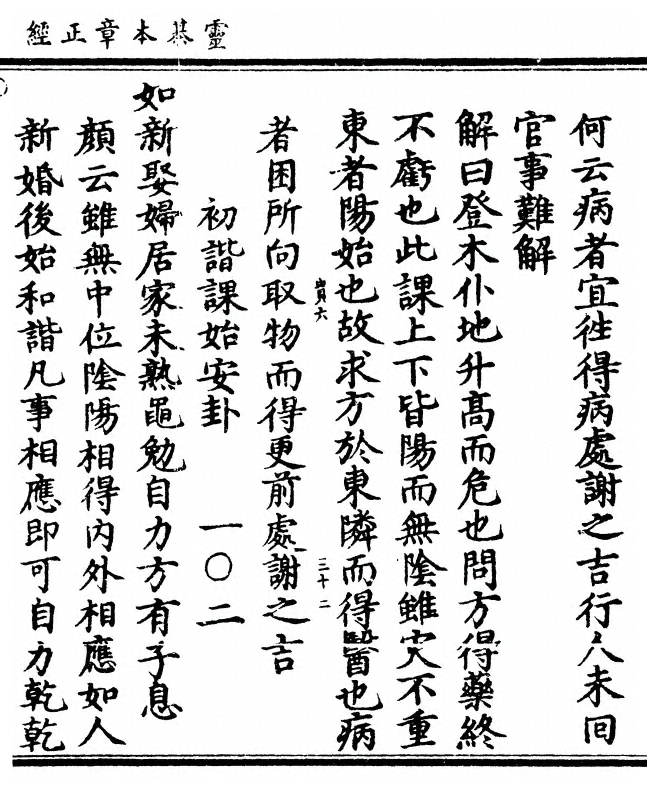 靈棊本章正經
何云病者宜徃得病處謝之吉行人未囘
官事難解
解曰登木仆地升高而危也問方得藥終
不虧也此課上下皆陽而無陰雖灾不重
東者陽始也故求方於東隣而得醫也病
者困所向取物而得更前處謝之吉
貟六
三十二
初諧課始安卦 一〇二
如新娶婦居家未熟黽勉自力方有子息
顔云雖無中位陰陽相得內外相應如人
新婚後始和諧凡事相應即可自力乾乾